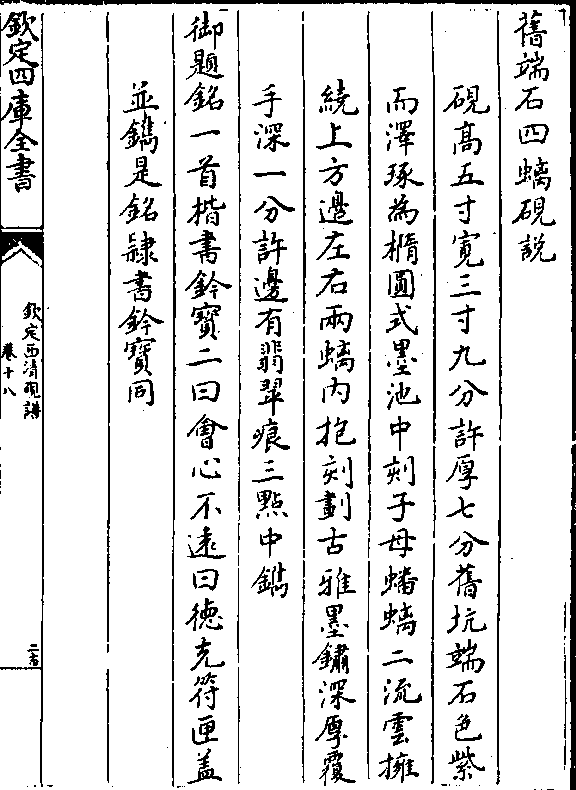 舊端石四螭硯説
硯髙五寸寛三寸九分許厚七分舊坑端石色紫
而澤琢為橢圓式墨池中刻子母蟠螭二流雲擁
繞上方邊左右兩螭内抱刻劃古雅墨鏽深厚覆
手深一分許邊有翡翠痕三點中鐫
御題銘一首楷書鈐寳二曰㑹心不逺曰徳充符匣盖
並鐫是銘隷書鈐寳同
欽定四庫全書
欽定西清硯譜
卷十八